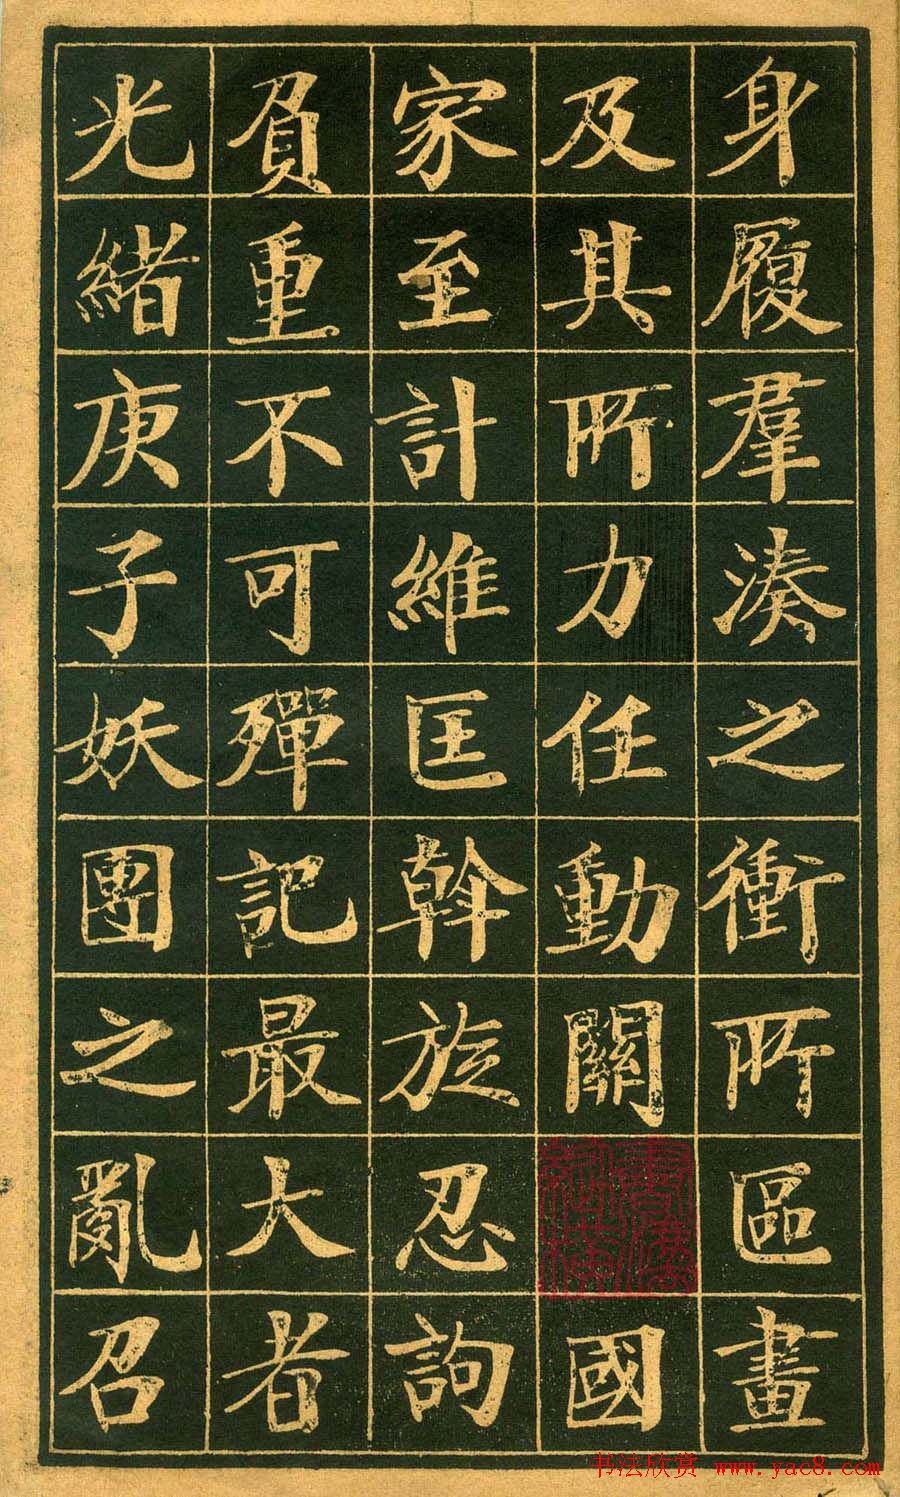 身履羣湊之衝所區畫
及其所力任動關國
家至計維匡斡於忍訽
負重不可殫記最大者
光緒庚子妖團之亂召
书法欣赏 www.yac8.com